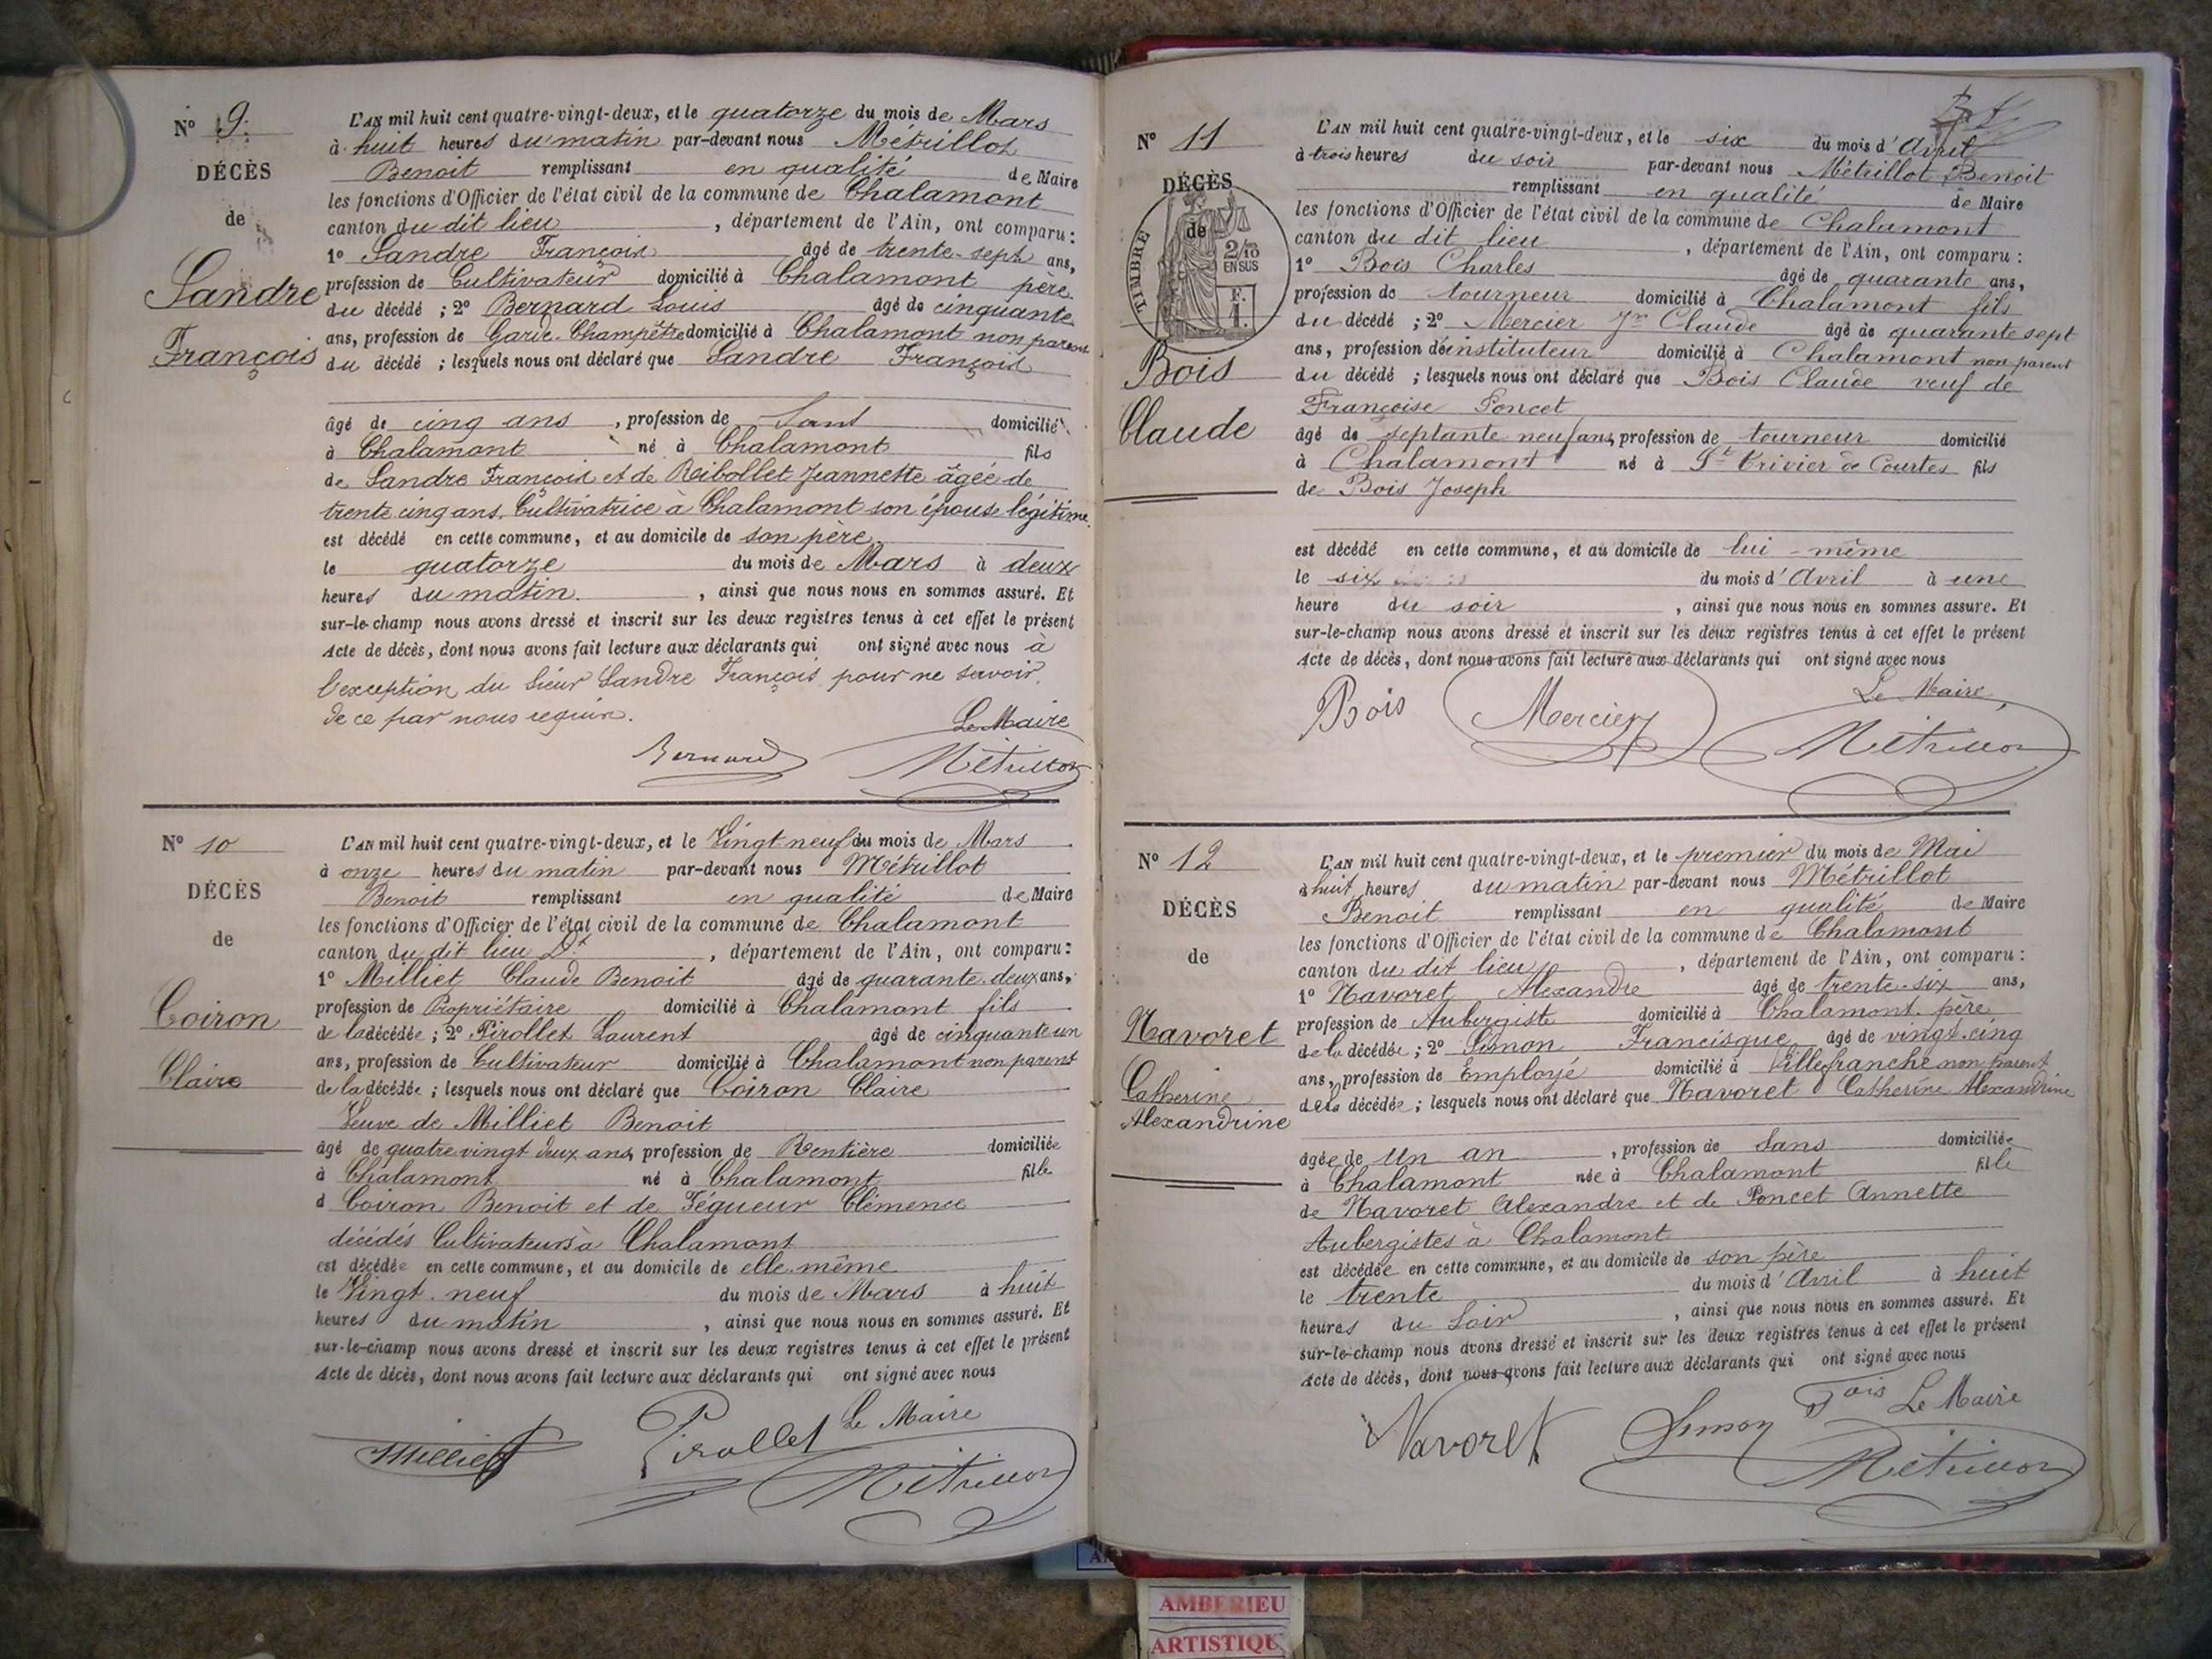 N° 9
DÉCÈS
de
Sandre
François
L'AN mil huit cent quatre-vingt-deux, et le quatorze du mois de Mars
à huit heures du matin par-devant nous Métrillot
Benoit remplissant en qualité de Maire
les fonctions d'Officier de l'état civil de la commune de Chalamont
canton du dit lieu , département de l'Ain, ont comparu :
1° Sandre François âgé de trente-sept ans,
profession de Cultivateur domicilié à Chalamont père
du décédé ; 2° Bernard Louis âgé de cinquante
ans, profession de Garde Champêtre domicilié à Chalamont non parent
du décédé ; lesquels nous ont déclaré que Sandre François
âgé de cinq ans , profession de Sans domicilié
à Chalamont né à Chalamont fils
de Sandre François et de Reibollet Jeannette âgée de
trente cinq ans, Cultivatrice à Chalamont son épouse légitime
est décédé en cette commune, et au domicile de son père
le quatorze du mois de Mars à deux
heures du matin , ainsi que nous nous en sommes assuré. Et
sur-le-champ nous avons dressé et inscrit sur les deux registres tenus à cet effet le présent
Acte de décès, dont nous avons fait lecture aux déclarants qui ont signé avec nous à
l'exception du Sieur Sandre François pour ne savoir
de ce par nous requis.
Le Maire
Bernard Métrillot
N° 10
DÉCÈS
de
Coiron
Claire
L'AN mil huit cent quatre-vingt-deux, et le Vingt neuf du mois de Mars
à onze heures du matin par-devant nous Métrillot
Benoit remplissant en qualité de Maire
les fonctions d'Officier de l'état civil de la commune de Chalamont
canton du dit lieu Dt , département de l'Ain, ont comparu :
1° Milliet Claude Benoit âgé de quarante deux ans,
profession de Propriétaire domicilié à Chalamont fils
de la décédée ; 2° Pirollet Laurent âgé de cinquante un
ans, profession de Cultivateur domicilié à Chalamont non parent
de la décédée ; lesquels nous ont déclaré que Coiron Claire
Veuve de Milliet Benoit
âgé de quatre vingt deux ans, profession de Rentière domiciliée
à Chalamont né à Chalamont fille
d Coiron Benoit et de Féqueur Clémence
décédés Cultivateurs à Chalamont
est décédée en cette commune, et au domicile de elle-même
le Vingt-neuf du mois de Mars à huit
heures du matin , ainsi que nous nous en sommes assuré. Et
sur-le-champ nous avons dressé et inscrit sur les deux registres tenus à cet effet le présent
Acte de décès, dont nous avons fait lecture aux déclarants qui ont signé avec nous
Milliet Pirollet Le Maire
Métrillot
N° 11
DÉCÈS
de
TIMBRE
2/10
EN SUS
F.
1.
Bois
Claude
L'AN mil huit cent quatre-vingt-deux, et le six du mois d'Avril
à trois heures du soir par-devant nous Métrillot Benoit
remplissant en qualité de Maire
les fonctions d'Officier de l'état civil de la commune de Chalamont
canton du dit lieu , département de l'Ain, ont comparu :
1° Bois Charles âgé de quarante ans,
profession de tourneur domicilié à Chalamont fils
du décédé ; 2° Mercier Jn Claude âgé de quarante sept
ans, profession de instituteur domicilié à Chalamont non parent
du décédé ; lesquels nous ont déclaré que Bois Claude veuf de
Françoise Poncet
âgé de septante neuf ans, profession de tourneur domicilié
à Chalamont né à St Trivier de Courtes fils
de Bois Joseph
est décédé en cette commune, et au domicile de lui-même
le six du mois d'Avril à une
heure du soir , ainsi que nous nous en sommes assuré. Et
sur-le-champ nous avons dressé et inscrit sur les deux registres tenus à cet effet le présent
Acte de décès, dont nous avons fait lecture aux déclarants qui ont signé avec nous
Bois Mercier Le Maire
Métrillot
N° 12
DÉCÈS
de
Navoret
Catherine
Alexandrine
L'AN mil huit cent quatre-vingt-deux, et le premier du mois de Mai
à huit heures du matin par-devant nous Métrillot
Benoit remplissant en qualité de Maire
les fonctions d'Officier de l'état civil de la commune de Chalamont
canton du dit lieu , département de l'Ain, ont comparu :
1° Navoret Alexandre âgé de trente-six ans,
profession de Aubergiste domicilié à Chalamont père
de la décédée ; 2° Simon Francisque âgé de vingt-cinq
ans, profession de Employé domicilié à Villefranche non parent
de la décédée ; lesquels nous ont déclaré que Navoret Catherine Alexandrine
âgée de un an , profession de Sans domiciliée
à Chalamont née à Chalamont fille
de Navoret Alexandre et de Poncet Annette
Aubergistes à Chalamont
est décédée en cette commune, et au domicile de son père
le trente du mois d'Avril à huit
heures du Soir , ainsi que nous nous en sommes assuré. Et
sur-le-champ nous avons dressé et inscrit sur les deux registres tenus à cet effet le présent
Acte de décès, dont nous avons fait lecture aux déclarants qui ont signé avec nous
Navoret Simon Fois Le Maire
Métrillot
AMBERIEU
ARTISTIQU